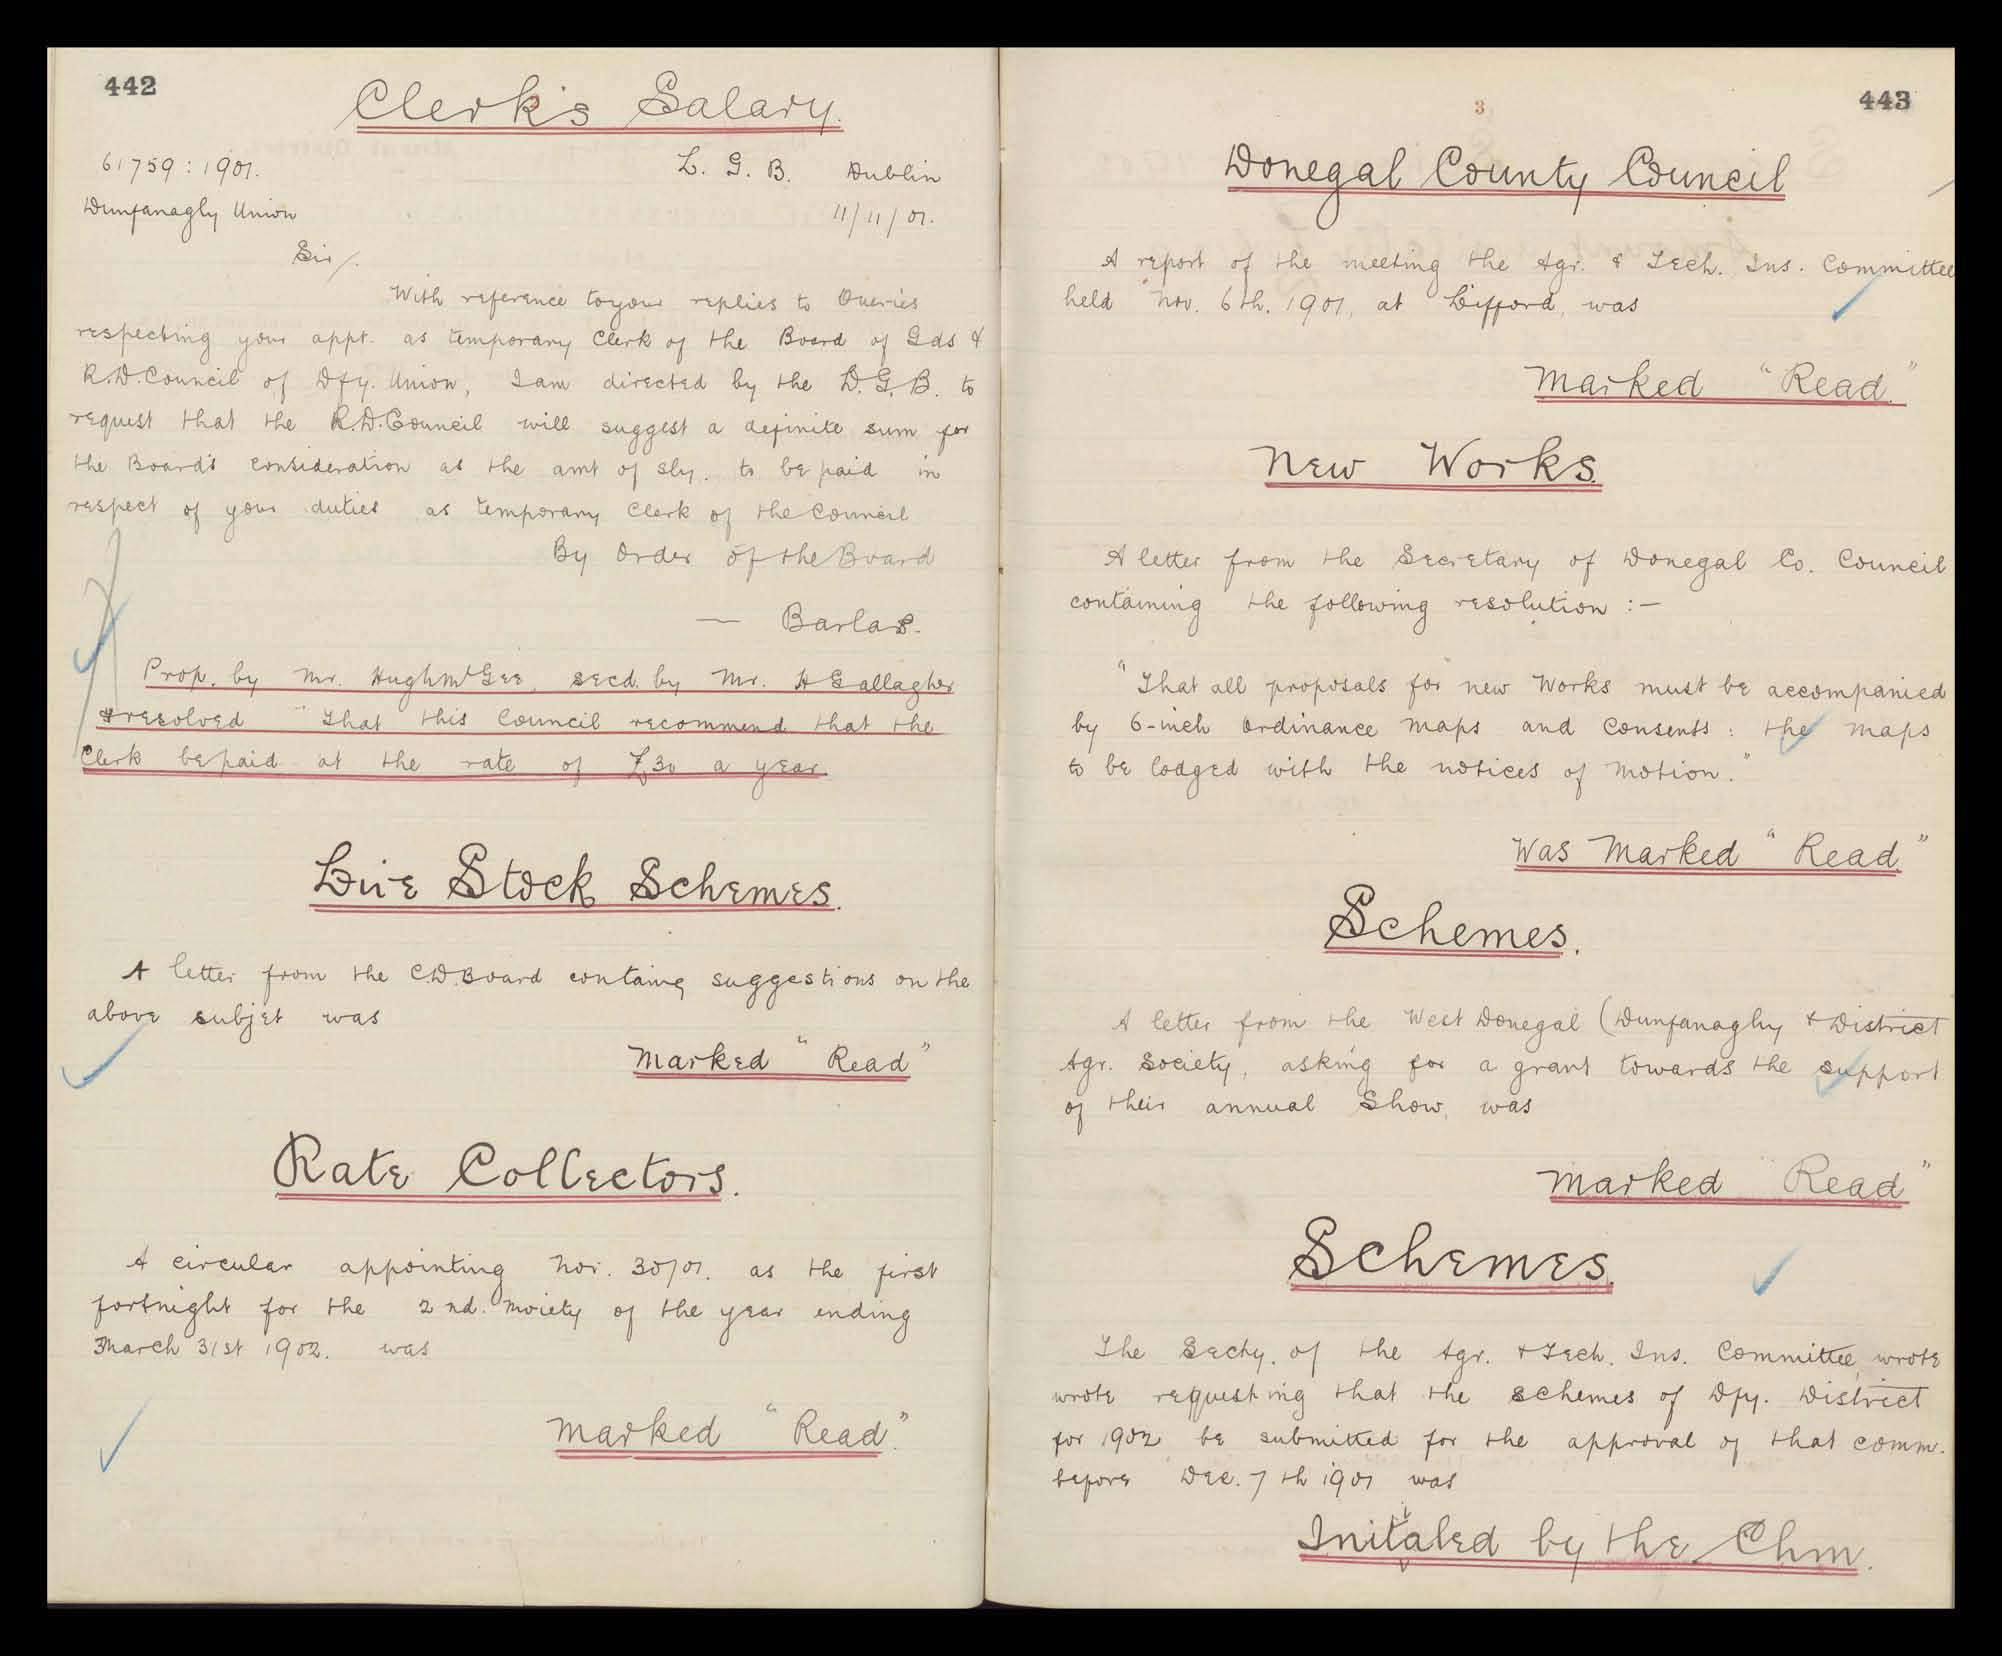 442
Clerk's Salary.
61759 : 1901. L. G. B. Dublin
Dunfanaghy Union 11/11/01.
Sir/.
With reference to your replies to Queries
respecting your appt. as temporary Clerk of the Board of Gds &
R.D. Council of Dfy. Union, I am directed by the L.G.B. to
request that the R.D. Council will suggest a definite sum for
the Board's consideration as the amt of sly. to be paid in
respect of your duties as temporary Clerk of the Council
By Order of the Board
— Barlas.
Prop. by Mr. Hugh McGee, secd. by Mr. H Gallagher
& resolved "That this Council recommend that the
Clerk be paid at the rate of £30 a year.
Live Stock Schemes.
A letter from the C.D. Board containg suggestions on the
above subjet was
Marked "Read"
Rate Collectors.
A circular appointing Nov. 30/01. as the first
fortnight for the 2nd. Moiety of the year ending
March 31st 1902. was
Marked "Read."
443
3
Donegal County Council
A report of the meeting the Agr. & Tech. Ins. Committee
held Nov. 6th. 1901, at Lifford, was
Marked "Read."
New Works.
A letter from the Secretary of Donegal Co. Council
containing the following resolution :—
"That all proposals for new Works must be accompanied
by 6-inch Ordinance Maps and Consents : the Maps
to be lodged with the notices of Motion."
Was Marked "Read."
Schemes.
A letter from the West Donegal (Dunfanaghy & District
Agr. Society, asking for a grant towards the support
of their annual Show, was
Marked "Read"
Schemes.
The Secty. of the Agr. & Tech. Ins. Committee wrote
wrote requesting that the schemes of Dfy. District
for 1902 be submitted for the approval of that Comm.
before Dec. 7th 1901 was
Initialed by the Chm.